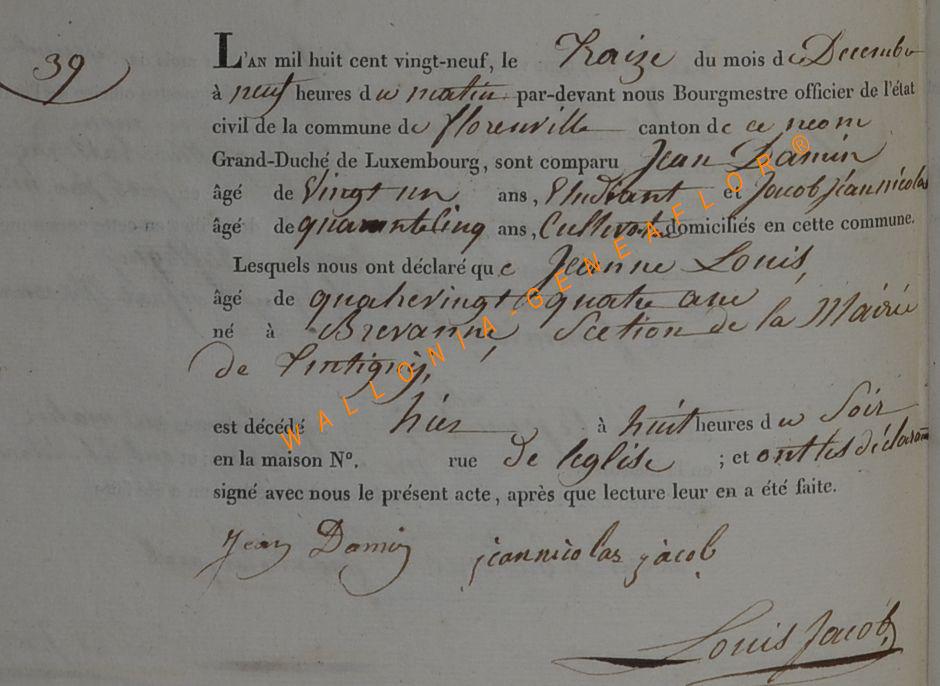 39
L'AN mil huit cent vingt-neuf, le Traize du mois de Decembre
à neuf heures du matin par-devant nous Bourgmestre officier de l'état
civil de la commune de florenville canton de ce nom
Grand-Duché de Luxembourg, sont comparu Jean Damin
âgé de Vingt un ans, Etudiant et Jacob jeannicolas
âgé de quarantecinq ans, Cultivateur domiciliés en cette commune.
Lesquels nous ont déclaré que Jeanne Louis,
âgé de quatrevingt quatre ans
né à Brevanne, Section de la Mairie
de Tintigny,
est décédé hier à huit heures du Soir
en la maison N°. rue de leglise ; et ont les déclarants
signé avec nous le présent acte, après que lecture leur en a été faite.
Jean Damin jeannicolas jacob
Louis Jacob
WALLONIA-GENEAFLOR®